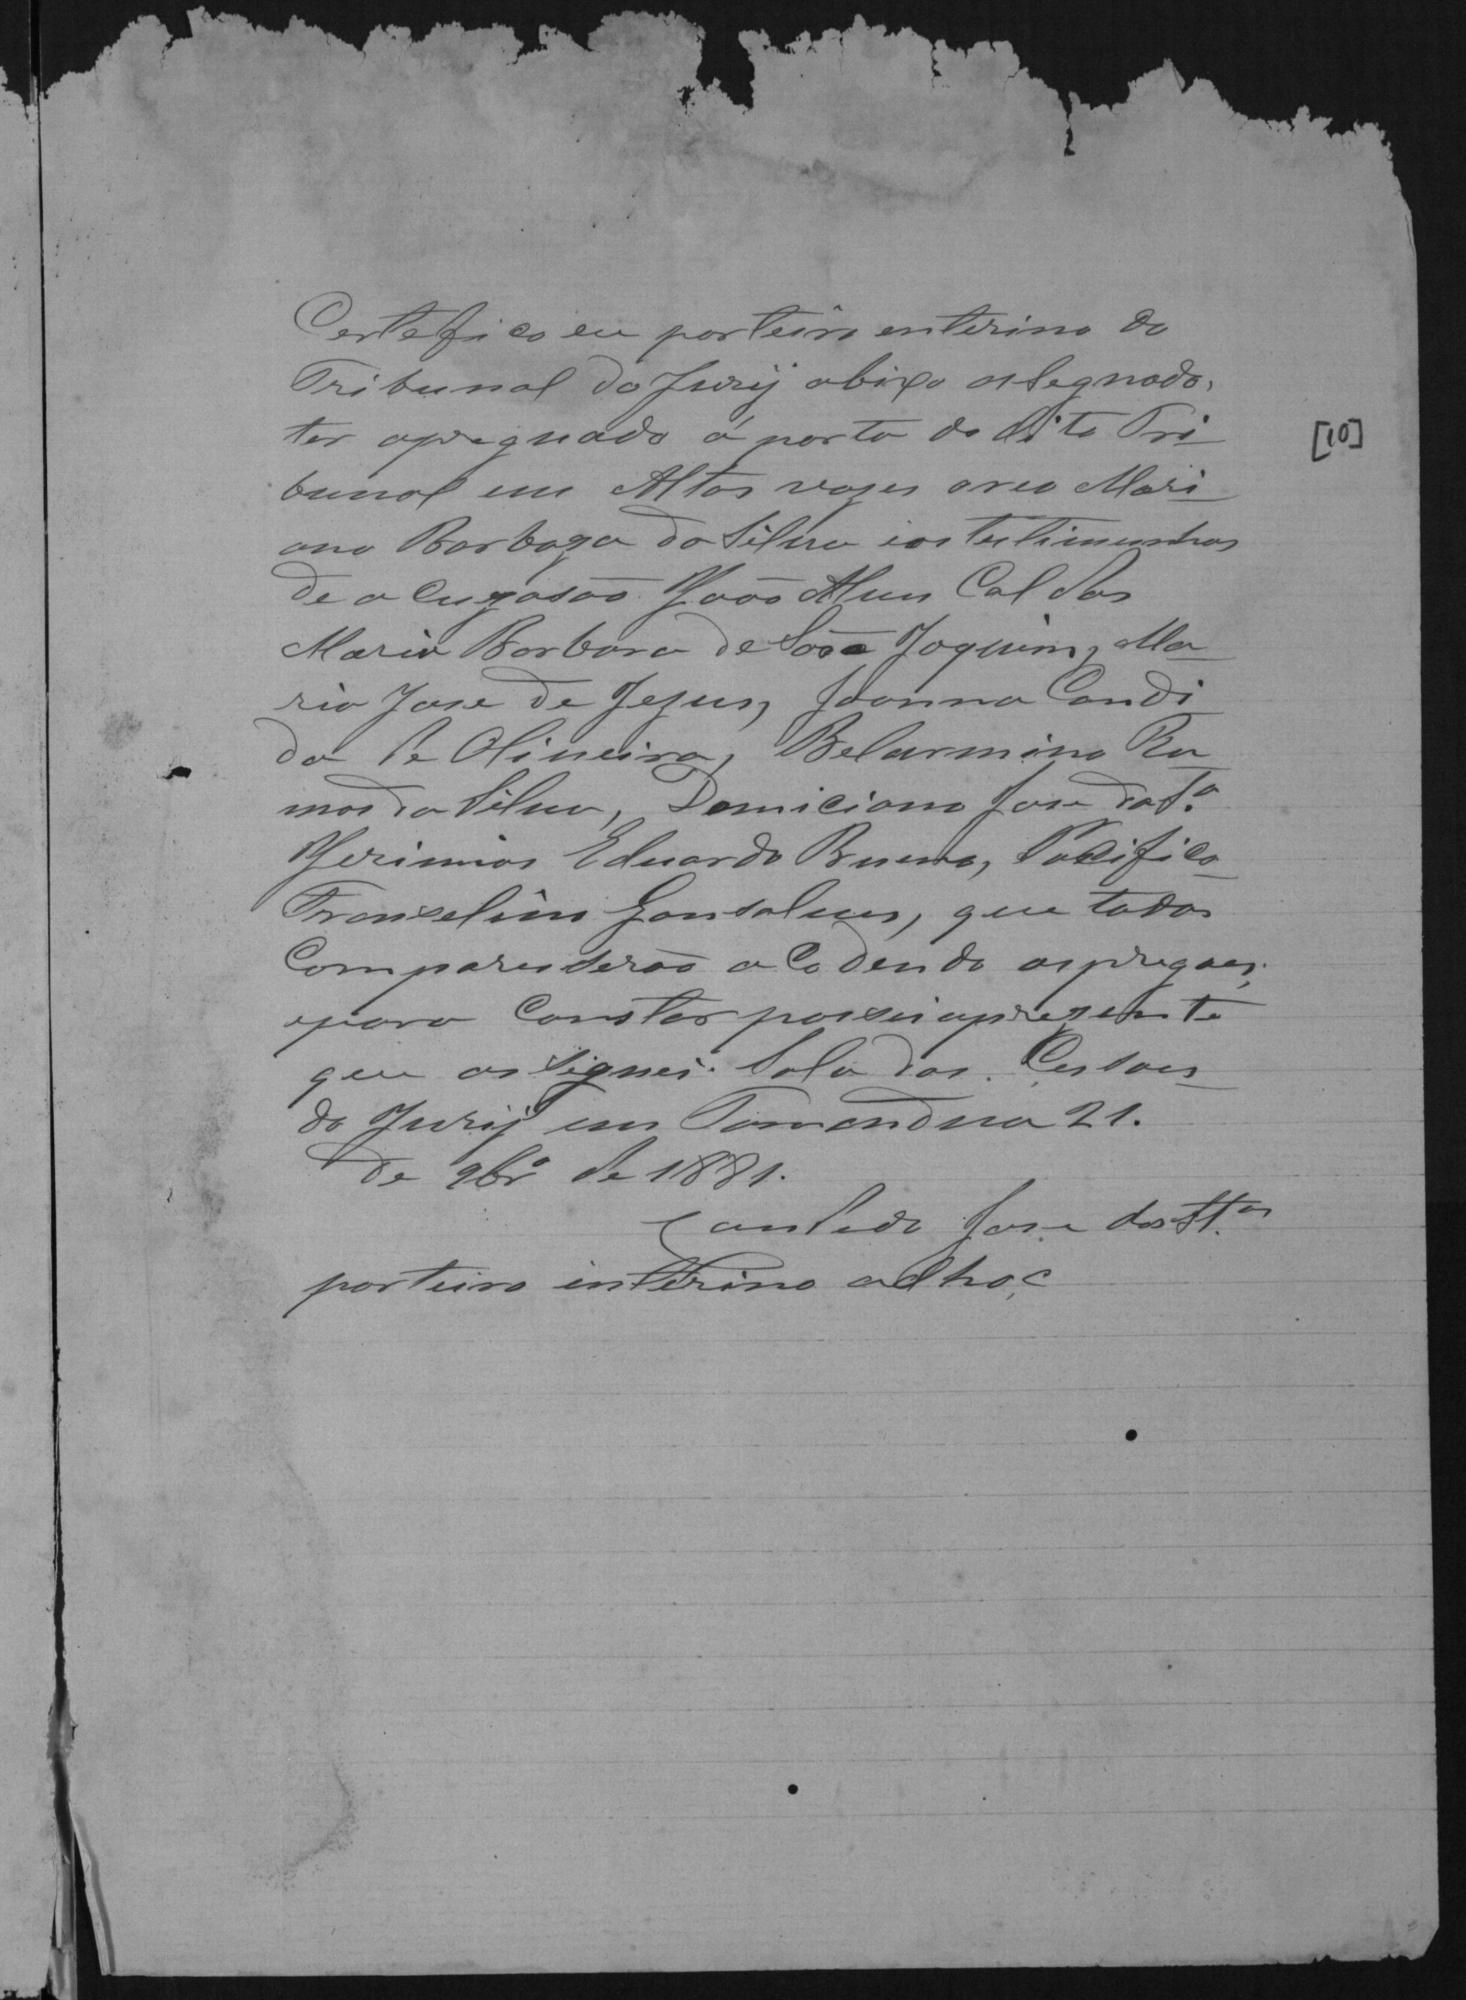 Certefico eu porteiro enterino do
Tribunal do Jurÿ abixo assegnado,
ter apregnado á porta do dito Tri
bunal em Altas vozes oreo Mari
ano Barboza da Silva eas testimunhas
de acuzasão João Alves Caldas
Maria Barbara de São Joquim, Ma
ria Jose de Jezus, Joanna Candi
da de Oliveira, Belarmino Ra
mos da Silva, Domiciano Jose da S.ª
Jerimias Eduardo Bueno, Pacifico
Franselino Gonsalves, que todos
Compareserão acodendo aspregoes,
epara Constar passei aprezente
que assignei. Sala das Cesoes
do Jurÿ em Tamandua 21.
de 9br.º de 1881.
Candido Jose dos St.ºs
porteiro interino adhoc
[10]